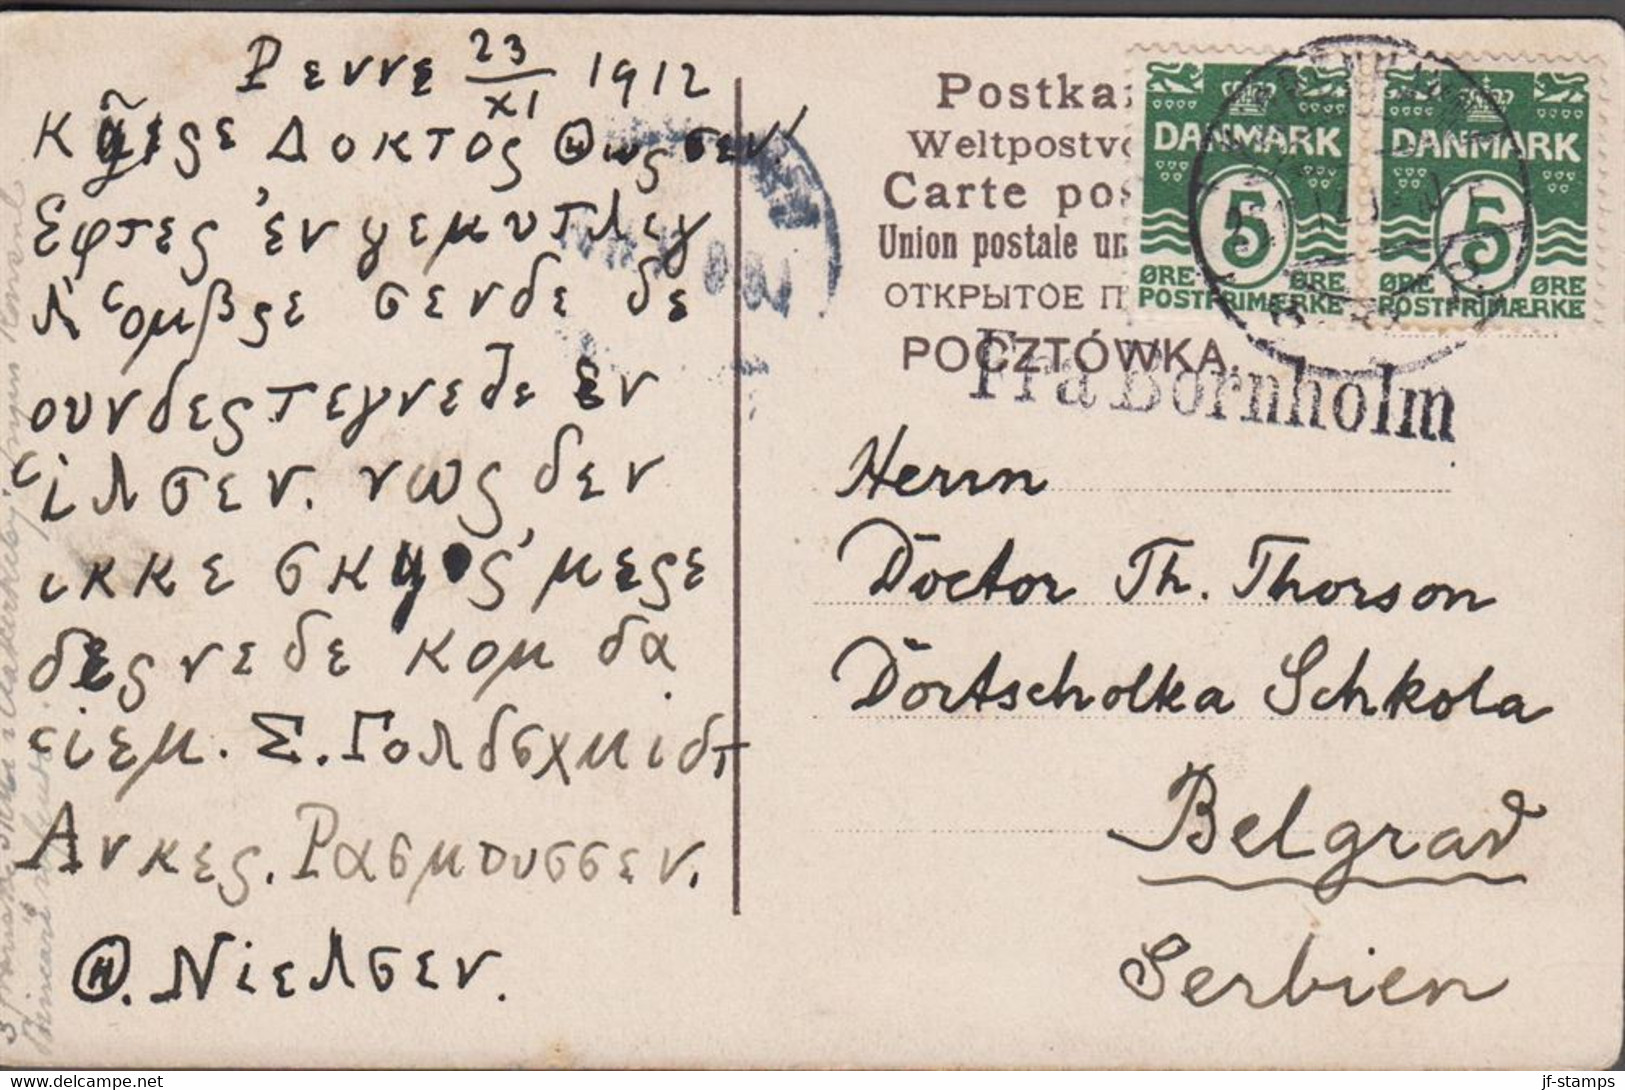 Ρεννε 23/XI 1912
Κῃςε Δοκτος Θωςσεν!
Εφτες 'εν γεμυτλεγ
Λ῾ομβςε σενδε δε
ουνδεςτεγνεδε εν
῾ιλσεν. νως δεν
ικκε σκυς' μεςε
δεςνεδε κομ δα
῾ιεμ. Σ. Γολδσχμιδτ
Ανκες. Ρασμουσσεν.
Θ. Νιελσεν.
Postka
Weltpostv
Carte pos
Union postale un
ОТКРЫТОЕ П
POCZTÓWKA.
DANMARK
5
ØRE ØRE
POSTFRIMÆRKE
DANMARK
5
ØRE ØRE
POSTFRIMÆRKE
Fra Bornholm
Herrn
Doctor Th. Thorson
Dortscholka Schkola
Belgrad
Serbien
© www.delcampe.net
jf-stamps